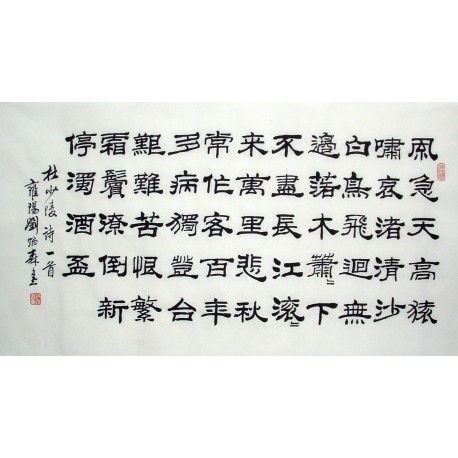 風急天高猿
嘯哀渚清沙
白鳥飛迴無
邊落木蕭〻下
不盡長江滾〻
来萬里悲秋
常作客百年
多病獨登台
艱難苦恨繁
霜鬢潦倒新
停濁酒盃
杜少陵詩一首
雍陽劉炳森書